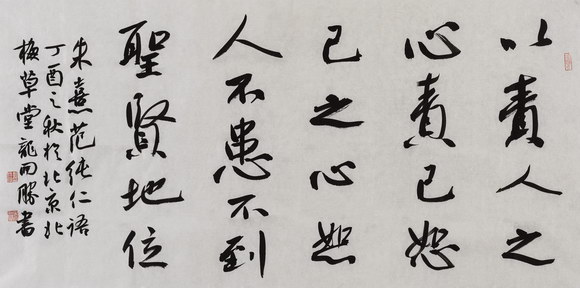 以責人之
心責己恕
己之心恕
人不患不到
聖賢地位
朱熹范纯仁语
丁酉之秋於北京北
梅草堂龍勝書